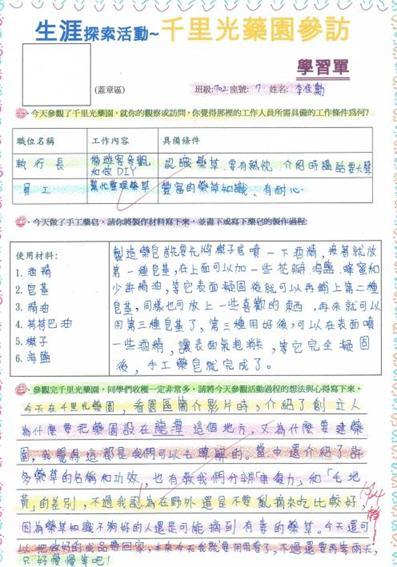 生涯探索活動~千里光藥園參訪
學習單
(蓋章區)
班級:702座號:7 姓名:
一、今天參觀了千里光藥園,就你的觀察或訪問,你覺得那裡的工作人員所需具備的工作條件為何?
職位名稱 工作內容 具備條件
執行長 認識藥草、要有熱忱、介紹時講話要大聲
如做DIY
員工 豐富的藥草知識、有耐心
二、今天做了手工藥皂,請你將製作材料寫下來,並畫下或寫下藥皂的製作過程:
使用材料:
1. 酒精
2. 皂基
3. 精油
4. 葫芦巴油
5. 模子
6. 海鹽
製造藥皂首先要先將模子底噴一下酒精,接著就放
第一種皂基,在上面可以加一些花瓣、海鹽、蜂蜜和
少許精油,等它表面凝固後就可以再鋪上第二種
皂基,同樣也可放上一些喜歡的東西,再來就可以
用第三種皂基了,第三種用好後,可以在表面噴
一些酒精,讓表面氣泡消失,等它完全凝固
後,手工藥皂就完成了。
三、參觀完千里光藥園,同學們收穫一定非常多,請將今天參觀活動過程的想法與心得寫下來。
今天在千里光藥園,看園區簡介影片時,介紹了創立人
為什麼要把藥園設在龍潭這個地方,又為什麼要建藥
園,我覺得這都是我們可以去瞭解的。當中還介紹了許
多藥草的名稱和功效,也有教我們分辨「康復力」和「毛地
黃」的差別,不過我認為在野外還是不要亂摘來吃比較好,
因為藥草知識不夠好的人還是可能摘到有毒的藥草。今天還可
以把做好的成品帶回家,本來今天我就要用用看了,不過還要再等兩天,
只好慢慢等吧!